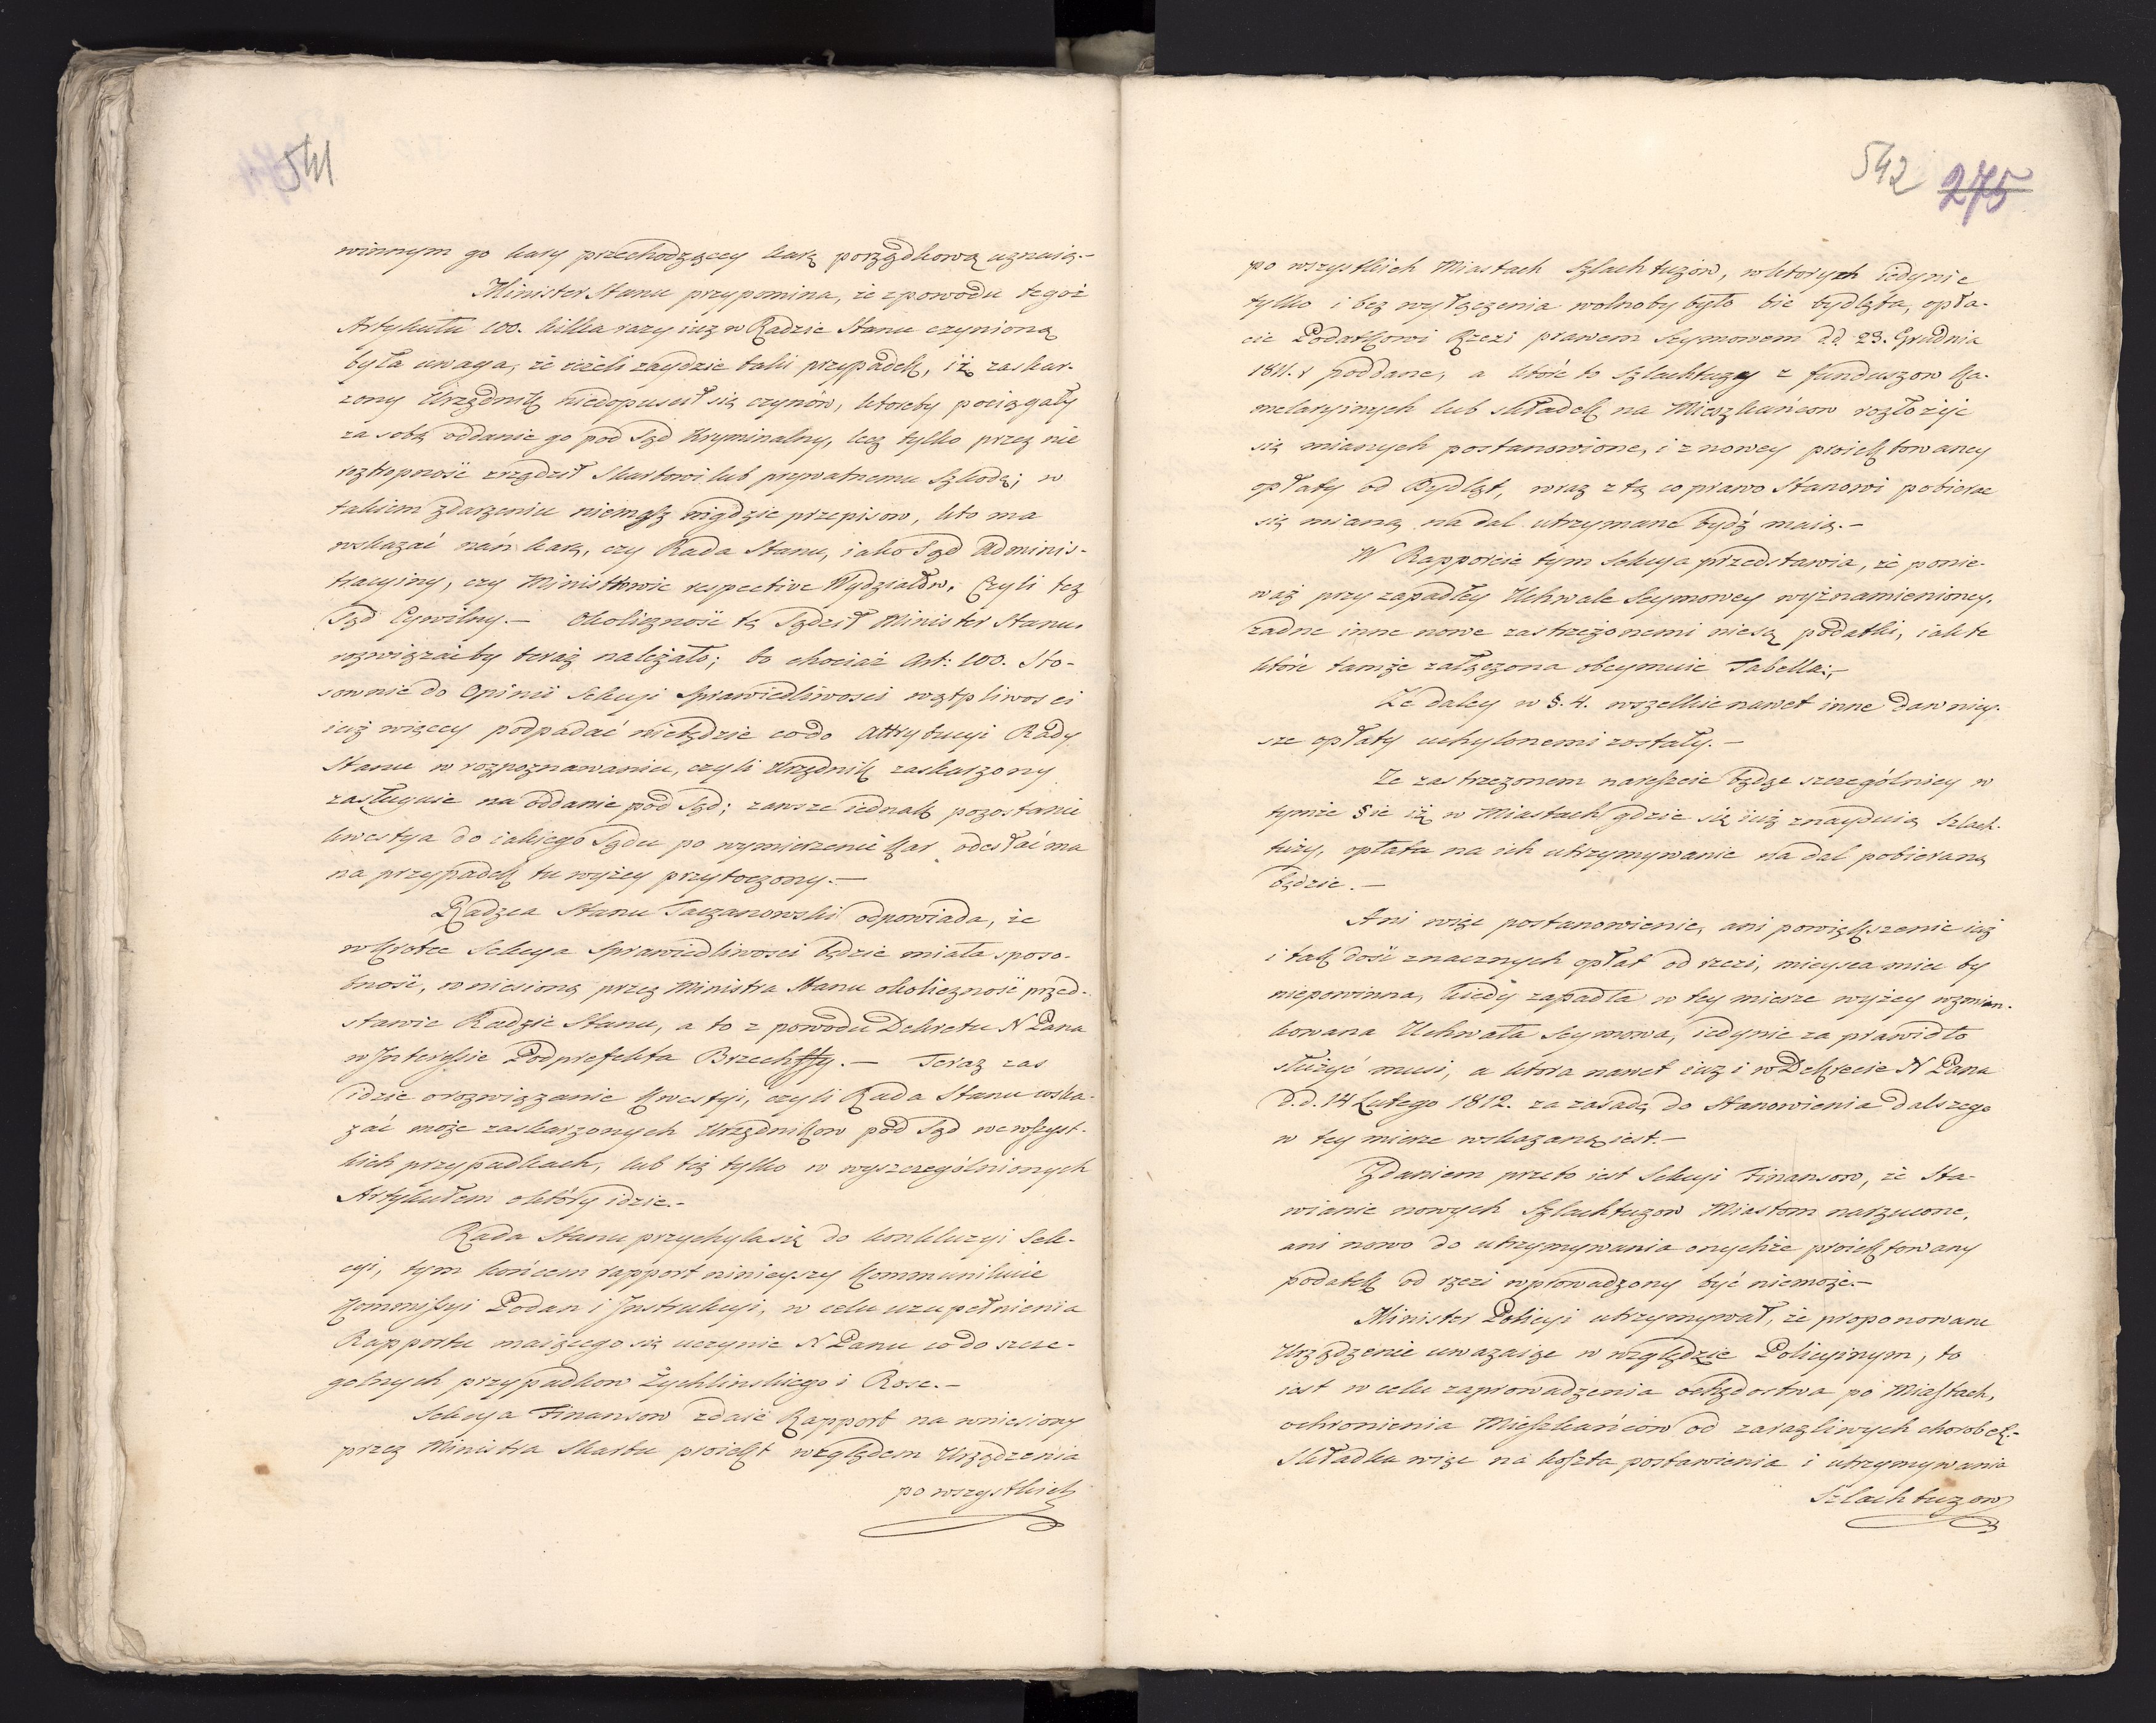 541
winnym go kary przechodzącey karę porządkową uznaią.-
Minister Stanu przypomina, że z powodu tegoż
Artykułu 100. kilka razy iuż w Radzie Stanu czynioną
była uwaga, że ieżeli zaydzie taki przypadek, iż zaskar-
żony Urzędnik niedopuścił się czynów, któreby pociągały
za sobą oddanie go pod Sąd Kryminalny, lecz tylko przez nie
roztropność zrządził Skarbowi lub prywatnemu szkodę; w
takiem zdarzeniu niemasz nigdzie przepisow, kto ma
wskazać nań karę, czy Rada Stanu, iako Sąd Adminis-
tracyiny, czy Ministrowie respective Wydziałów, Czyli też
Sąd Cywilny.- Okoliczność tę Sądził Minister Stanu,
rozwiązaćby teraz należało; bo chociaż Art: 100. Sto-
sownie do Opinii Sekcyi Sprawiedliwosci wątpliwosci
iuż więcey podpadać niebędzie co do attrybucyi Rady
Stanu w rozpoznawaniu, czyli Urzędnik zaskarzony
zasługuie na oddanie pod Sąd; zawsze iednak pozostanie
kwestya do iakiego Sądu po wymierzenie kar odesłać ma
na przypadek tu wyżey przytoczony.-
Radzca Stanu Taczanowski odpowiada, że
wkrotce Sekcya Sprawiedliwosci będzie miała sposo-
bność, wniesioną przez Ministra Stanu okoliczność przed-
stawic Radzie Stanu, a to z powodu Dekretu N Pana
w Interessie Podprefekta Brzechffy.- Teraz zas
idzie o rozwiązanie kwestyi, czyli Rada Stanu wska-
zać może zaskarzonych Urzędnikow pod Sąd we wszyst-
kich przypadkach, lub też tylko w wyszczególnionych
Artykułem o który idzie.-
Rada Stanu przychyla się do konkluzyi Sek-
cyi, tym końcem rapport ninieyszy kommunikuie
Kommissyi Podan i Instrukcyi, w celu uzupełnienia
Rapportu maiącego się uczynic N Panu co do szcze-
golnych przypadkow Żychlinskiego i Rose.-
Sekcya Finansow zdaie Rapport na wniesiony
przez Ministra Skarbu proiekt względem Urządzenia
po wszystkich
542 275
po wszystkich Miastach Szlachtuzów, w ktorych iedynie
tylko i bez wyłączenia wolnoby było bic bydlęta, opła-
cie Podatkowi Rzezi prawem Seymowem d.d. 23. Grudnia
1811. r poddane, a które to szlachtuzy z funduszow ka-
melaryinych lub składek na Mieszkańcow rozłożyć
się mianych postanowione, i z nowey proiektowaney
opłaty od Bydląt, wraz z tą co prawo Stanowi pobierac
się mianą na dal utrzymane bydź maią.-
W Rapporcie tym Sekcya przedstawia, że ponie-
waż przy zapadłey Uchwale Seymowey wyżnamienioney,
żadne inne nowe zastrzeżonemi niesą podatki, iak te
które tamże załączona obeymuie Tabella;-
Że daley w §. 4. wszelkie nawet inne dawniey-
sze opłaty uchylonemi zostały.-
Że zastrzeżonem nareszcie będąc szczególniey w
tymże §ie iż w Miastach gdzie się iuż znayduią Szlach-
tuzy, opłata na ich utrzymywanie na dal pobieraną
będzie.-
Ani więc postanowienie, ani powiększenie iuż
i tak dość znacznych opłat od rzezi, mieysca miec by
niepowinna, kiedy zapadła w tey mierze wyżey wzmian-
kowana Uchwała Seymowa, iedynie za prawidło
służyć musi, a która nawet iuż i w Dekrecie N Pana
d.d. 14 Lutego 1812. za zasadę do Stanowienia dalszego
w tey mierze wskazaną iest.-
Zdaniem przeto iest Sekcyi Finansow, że Sta-
wianie nowych Szlachtuzow Miastom narzucone,
ani nowo do utrzymywania onychże proiektowany
podatek od rzezi wprowadzony być niemoże.-
Minister Policyi utrzymywał, że proponowane
Urządzenie uwazaiąc w względzie Policyinym, to
iest w celu zaprowadzenia ochędostwa po Miastach,
ochronienia Mieszkańców od zarazliwych chorob etc.-
Składka więc na koszta postawienia i utrzymywania
Szlachtuzow